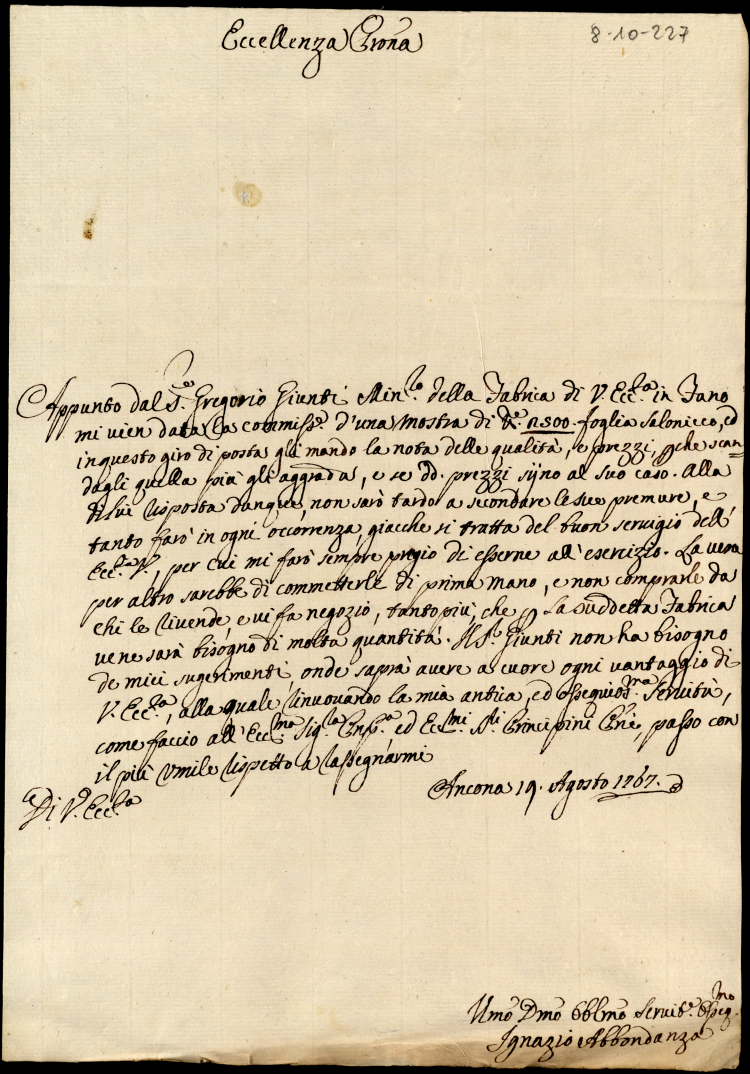 8-10-227
Eccellenza Prona
Appunto dal S.e Gregorio Giunti Min.le della Fabrica di V. Ecc.za in Fano
mi vien data la commiss.e d'una mostra di foglia Salonicco, ed
in questo giro di posta gli mando la nota delle qualità, e prezzi, pche scan=
dagli quella più gli aggrada, e se dd. prezzi sijno al suo caso. Alla
di lui risposta dunque, non sarò tardo a secondare le sue premure, e
tanto farò in ogni occorrenza, giacche si tratta del buon servigio dell'
Ecc.za V., per cui mi farò sempre pregio di esserne all'esercizio. La vera
per altro sarebbe di commetterle di prima mano, e non comprarle da
chi le rivende, e vi fa negozio, tanto più, che p la suddetta Fabrica
ve ne sarà bisogno di molta quantità. Il S.r Giunti non ha bisogno
de miei sugerimenti, onde saprà avere a cuore ogni vantaggio di
V. Ecc.za, alla quale rinuovando la mia antica, ed ossequios.ma servitù,
come faccio all'Ecc.ma Sig.ra Pnssa ed Ecc.mi S.ri Principini Pni, passo con
il più umile rispetto a rassegnarmi
Di V.a Ecc.za
Ancona 19. Agosto 1767.
Umo Dmo Obblmo Servit.e Osseq.mo
Ignazio Abbondanza